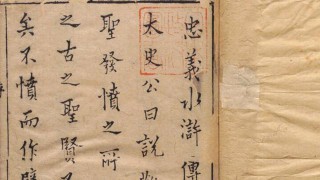 忠義水滸傳
太史公曰說
聖發憤之所
之古之聖賢
矣不憤而作